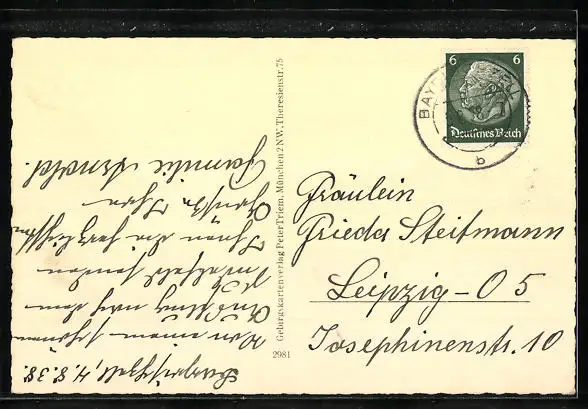 Bayrischzell, 4.8.38.
Von einem schönen
Ausflug nach dem
senden
Ihnen die herzlichsten
Grüße Ihre
Familie
Geburgskartenverlag Peter Triem, München 2 NW, Theresienstr. 75
2981
6 6
Deutsches Reich
BAYR
b
Fräulein
Frieda Steitmann
Leipzig - O 5
Josephinenstr. 10